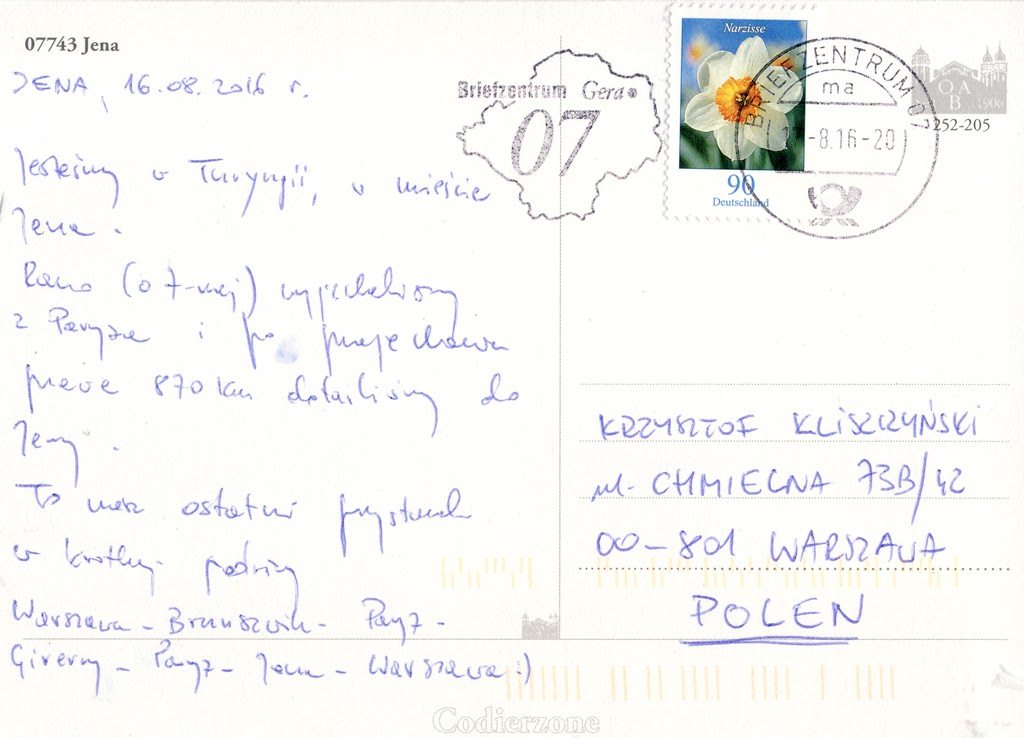 07743 Jena
JENA, 16.08.2016 r.
Jesteśmy w Turyngii, w mieście
Jena.
Rano (o 7-mej) wyjechaliśmy
z Paryża i po przejechaniu
prawie 870 km dotarliśmy do
Jeny.
To nasz ostatni przystanek
w krótkiej podróży
Warszawa - Brunszwik - Paryż -
Giverny - Paryż - Jena - Warszawa :)
Briefzentrum Gera
07
Narzisse
90
Deutschland
BRIEFZENTRUM 07
ma
-8.16-20
OAB 1906
252-205
KRZYSZTOF KLISZCZYŃSKI
ul. CHMIELNA 73B/42
00-801 WARSZAWA
POLEN
Codierzone